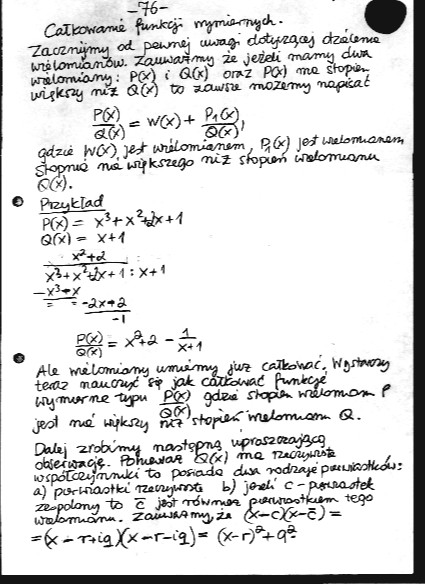 -76-
Całkowanie funkcji wymiernych.
Zacznijmy od pewnej uwagi dotyczącej dzielenia
wielomianów. Zauważmy że jeżeli mamy dwa
wielomiany: P(x) i Q(x) oraz P(x) ma stopień
większy niż Q(x) to zawsze możemy napisać
P(x)/Q(x) = W(x) + P₁(x)/Q(x),
gdzie W(x) jest wielomianem, P₁(x) jest wielomianem
stopnia nie większego niż stopień wielomianu
Q(x).
Przykład
P(x) = x³+x²+2x+1
Q(x) = x+1
x²+2
x³+x²+2x+1 : x+1
-x³+x
= = -2x+2
-1
P(x)/Q(x) = x²+2 - 1/(x+1)
Ale wielomiany umiemy już całkować. Wystarczy
teraz nauczyć się jak całkować funkcje
wymierne typu P(x)/Q(x) gdzie stopień wielomianu P
jest nie większy niż stopień wielomianu Q.
Dalej zrobimy następną upraszczającą
obserwację. Ponieważ Q(x) ma rzeczywiste
współczynniki to posiada dwa rodzaje pierwiastków:
a) pierwiastki rzeczywiste b) jeśli c - pierwiastek
zespolony to c̄ jest również pierwiastkiem tego
wielomianu. Zauważmy, że (x-c)(x-c̄) =
= (x-r+iq)(x-r-iq) = (x-r)²+q²